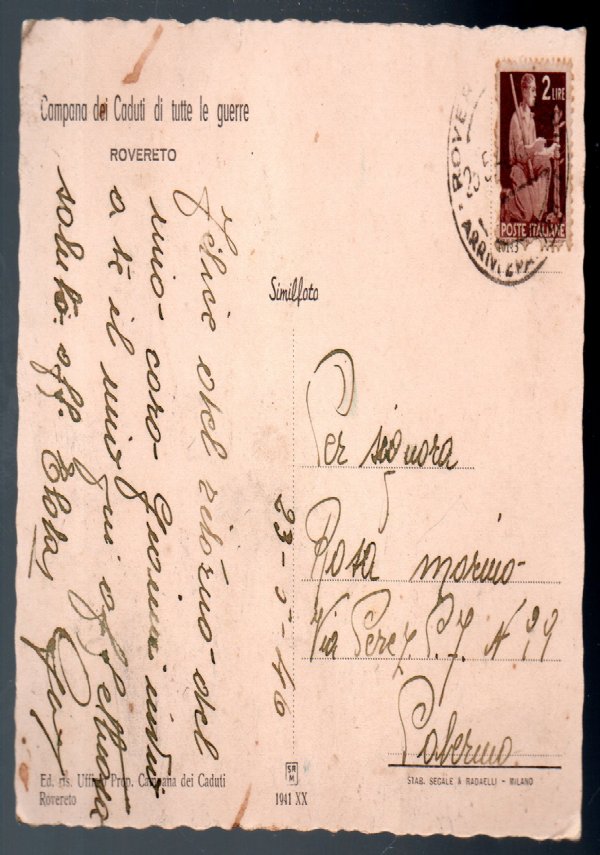 Campana dei Caduti di tutte le guerre
ROVERETO
2 LIRE
POSTE ITALIANE
ROVER
20
ARRIVI E PA
Similfoto
Felice del ritorno del
mio caro Giovanni invio
a te il mio più affettuoso
saluto. aff.
23-5-46
Per signora
Rosa Morino
Via Perez P. 7 N 99
Palermo
Ed. ris. Uffi Prop. Campana dei Caduti
Rovereto
SR
M
1941 XX
STAB. SEGALE & RADAELLI - MILANO